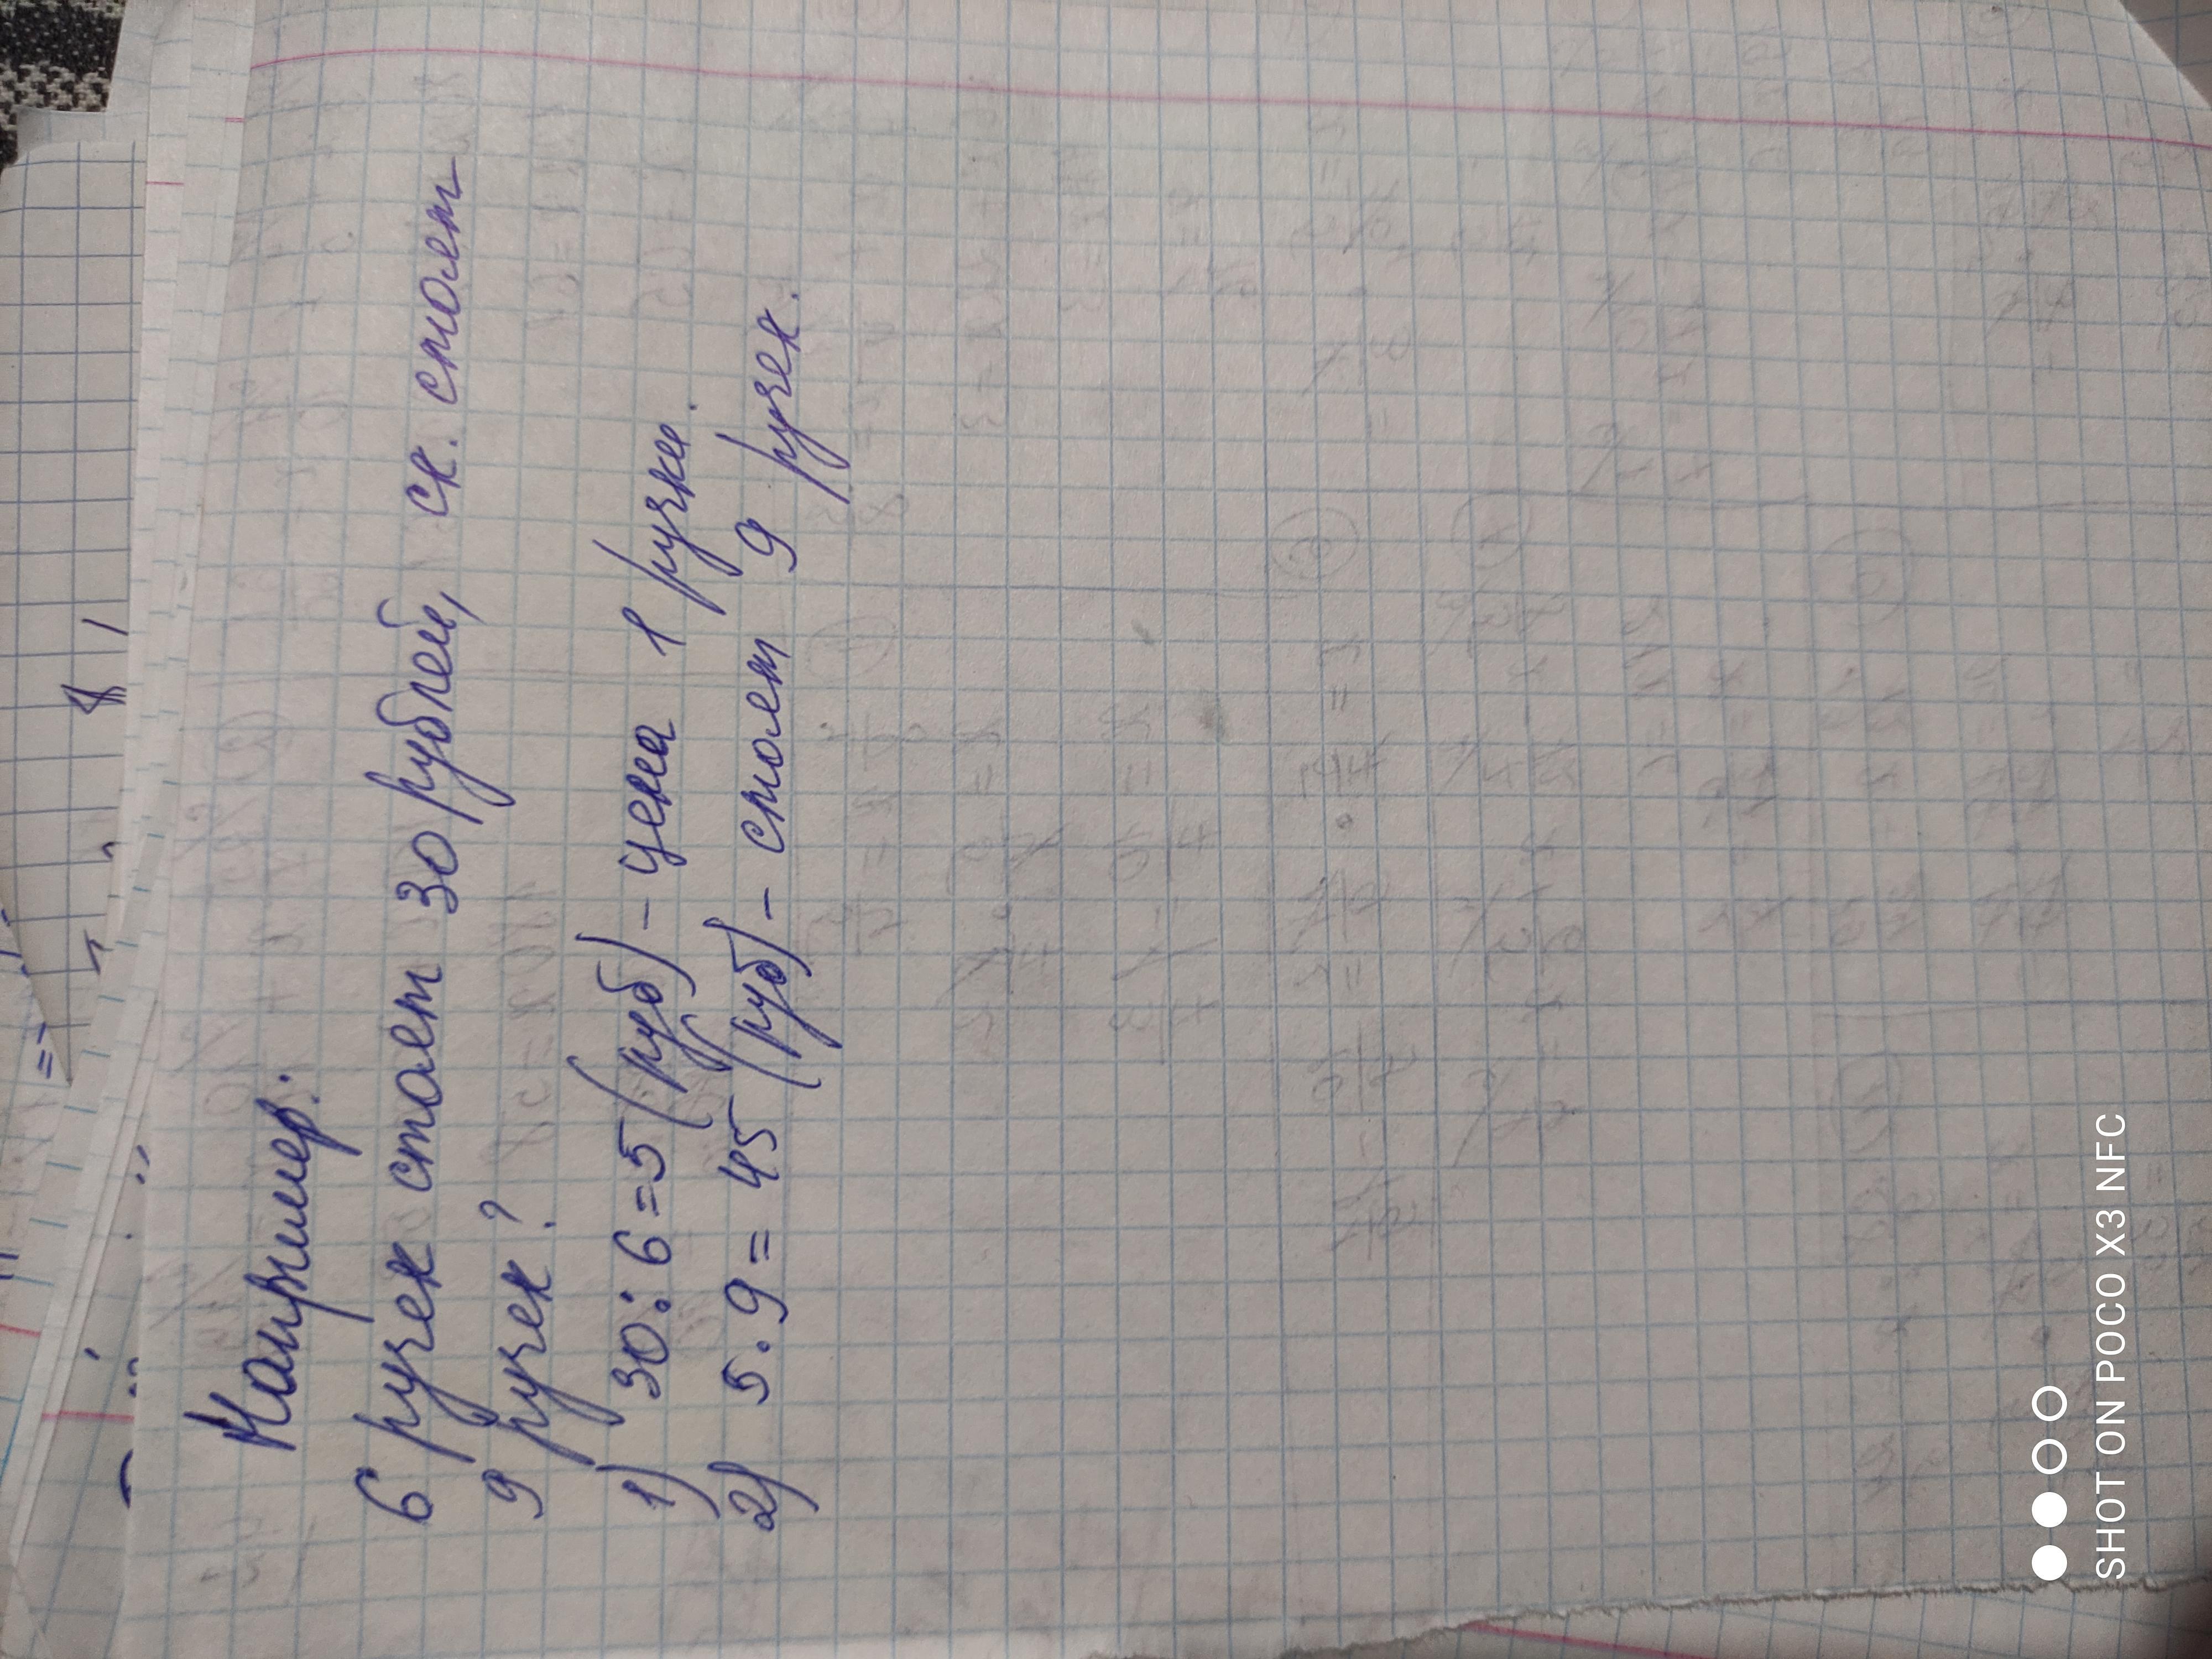 Например:
6 ручек стоят 30 рублей, ск. стоят
9 ручек?
1) 30:6=5 (руб) – цена 1 ручки.
2) 5·9=45 (руб) – стоят 9 ручек.
SHOT ON POCO X3 NFC